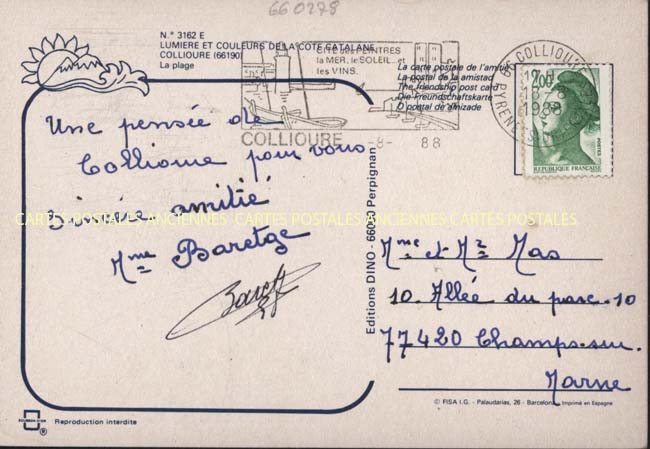 66 0278
N.° 3162 E
LUMIERE ET COULEURS DE LA COTE CATALANE
COLLIOURE (66190)
La plage
CITE des PEINTRES
la MER, le SOLEIL et
les VINS.
COLLIOURE
-8- 88
66 COLLIOURE
1988
La carte postale de l'amitié
La postal de la amistad
The friendship post card
Die Freundschaftskarte
O postal de amizade
2,00
POSTES
REPUBLIQUE FRANÇAISE
Une pensée de
Collioure pour vous
Sincère amitié
Mme Baretge
CARTES POSTALES ANCIENNES CARTES POSTALES ANCIENNES CARTES POSTALES
Editions DINO - 66000 Perpignan
Mme et Mr Mas
10. Allée du parc. 10
77420 Champs-sur.
Marne
© FISA I.G. - Palaudarias, 26 - Barcelona, Imprimé en Espagne
ESCUDO DE ORO
®
Reproduction interdite